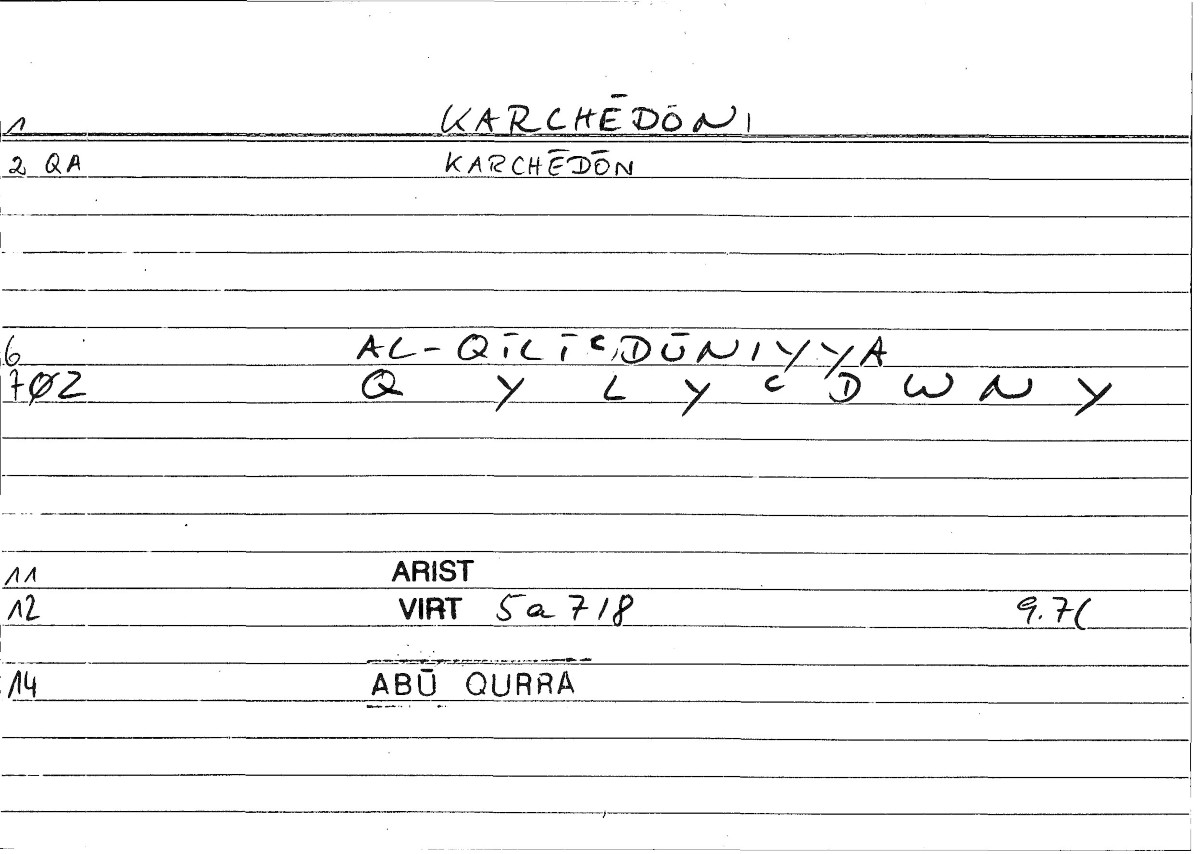 1 KARCHĒDŌNI
2 QA KARCHĒDŌN
6 AL-QĪLĪʿDŪNIYYA
7 ØZ Q Y L Y ʿ D W N Y
11 ARIST
12 VIRT 5a 7/8 9.7(
14 ABŪ QURRA